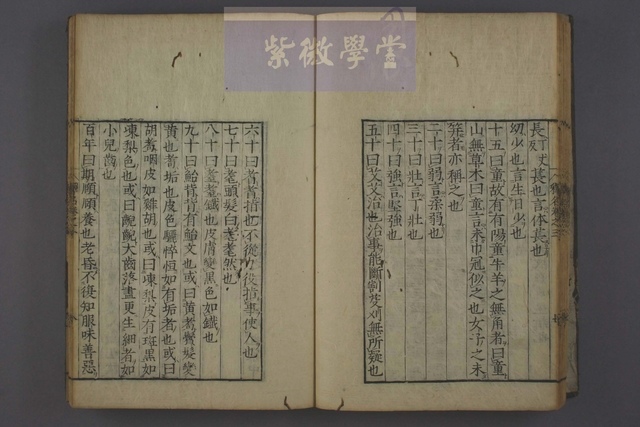 紫微學堂
長丈萇也言体萇也
幼少也言生日少也
十五曰童故有有陽童牛羊之無角者曰童
山無草木曰童言未巾冠似之也女子之未
笄者亦稱之也
二十曰弱言柔弱也
三十曰壯言丁壯也
四十曰強言堅強也
五十曰艾艾治也治事能斷割芟刈無所疑也
六十曰耆耆指也不從力役指事使人也
七十曰耄頭髮白耄耄然也
八十曰耋耋鐵也皮膚變黑色如鐵也
九十曰鮐背背有鮐文也或曰黃耇鬢髮變
黃也耇垢也皮色驪悴恒如有垢者也或曰
胡耇咽皮如雞胡也或曰凍梨皮有斑黑如
凍梨色也或曰齯齯大齒落盡更生細者如
小兒齒也
百年曰期頤頤養也老昏不復知服味善惡